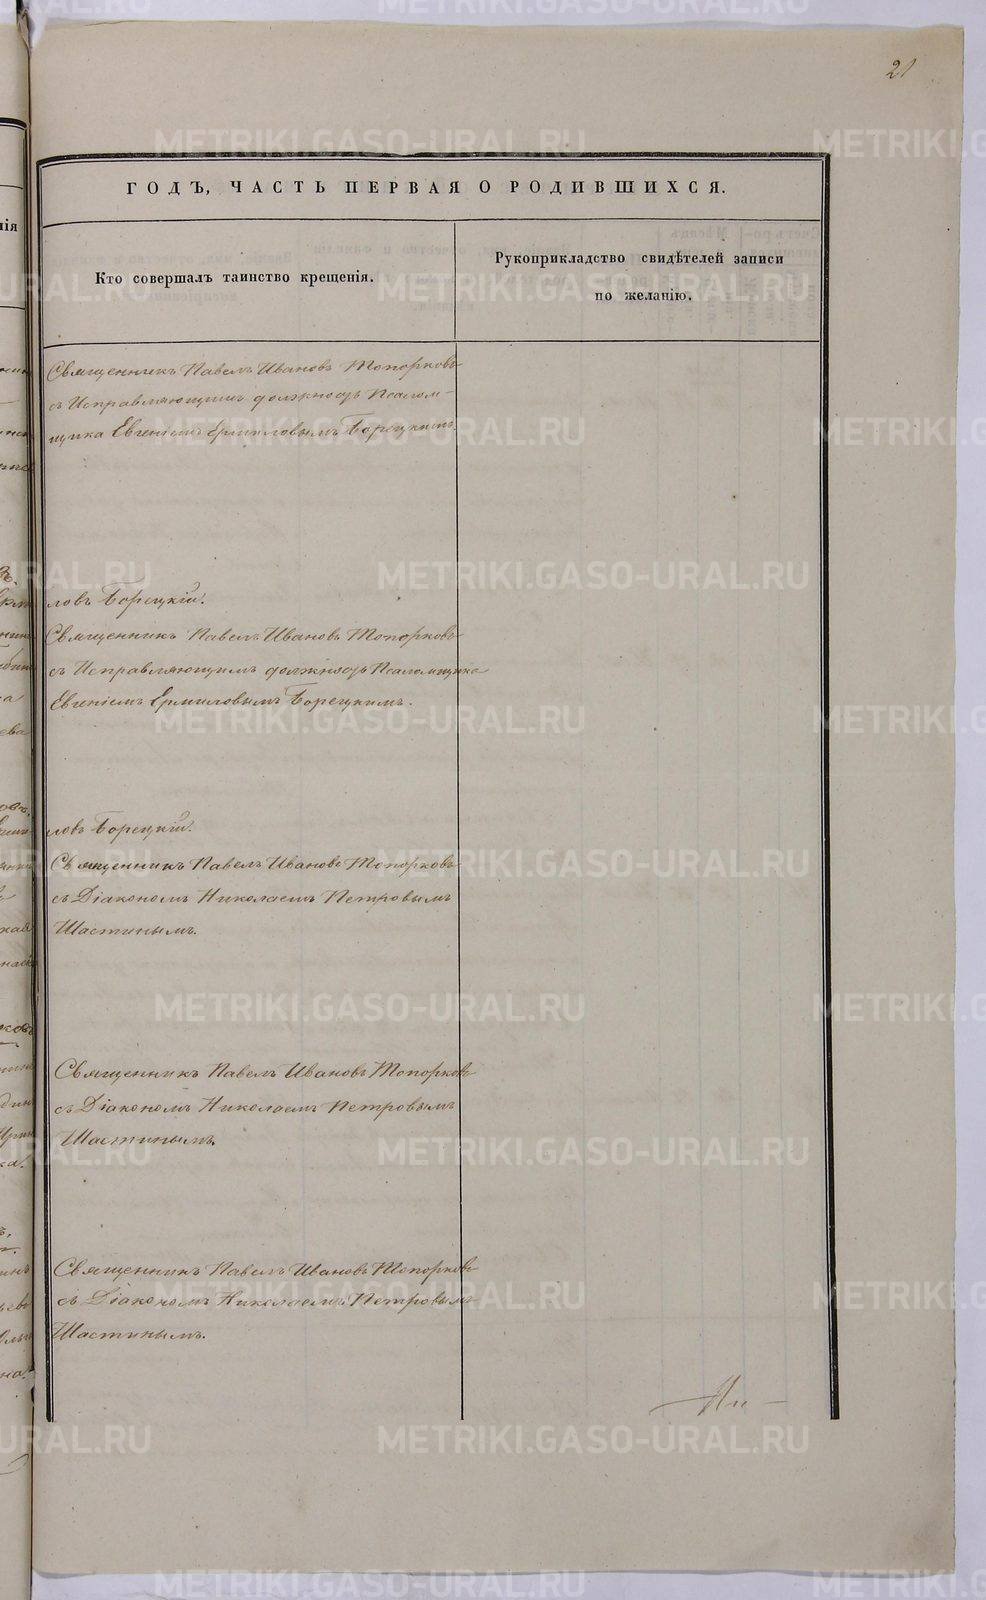 21
ГОДЪ, ЧАСТЬ ПЕРВАЯ О РОДИВШИХСЯ.
Кто совершалъ таинство крещенія.
Рукоприкладство свидѣтелей записи
по желанію.
Священникъ Павелъ Ивановъ Топорковъ
съ Исправляющимъ должность Псалом-
щика Евгеніемъ Ермиловымъ Борецкимъ
ловъ Борецкій.
Священникъ Павелъ Ивановъ Топорковъ
съ Исправляющимъ должность Псаломщика
Евгеніемъ Ермиловымъ Борецкимъ.
ловъ Борецкій.
Священникъ Павелъ Ивановъ Топорковъ
съ Діакономъ Николаемъ Петровымъ
Шастинымъ.
Священникъ Павелъ Ивановъ Топорковъ
съ Діакономъ Николаемъ Петровымъ
Шастинымъ.
Священникъ Павелъ Ивановъ Топорковъ
съ Діакономъ Николаемъ Петровымъ
Шастинымъ.
METRIKI.GASO-URAL.RU